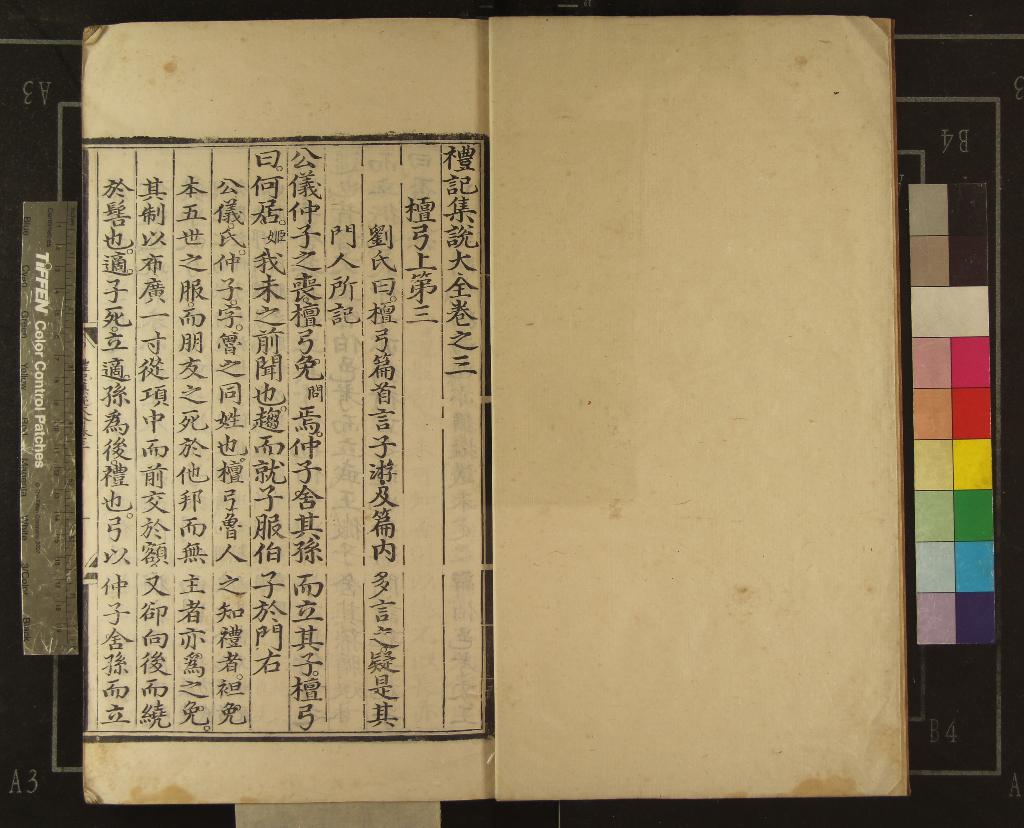 禮記集說大全卷之三
檀弓上第三
劉氏曰檀弓篇首言子游及篇內多言之疑是其
門人所記
公儀仲子之喪檀弓免問焉仲子舍其孫而立其子檀弓
曰何居姬我未之前聞也趨而就子服伯子於門右
公儀氏仲子字魯之同姓也檀弓魯人之知禮者袒免
本五世之服而朋友之死於他邦而無主者亦爲之免
其制以布廣一寸從項中而前交於額又卻向後而繞
於髻也適子死立適孫爲後禮也弓以仲子舍孫而立
TIFFEN Color Control Patches
A3
A3
B4
B4